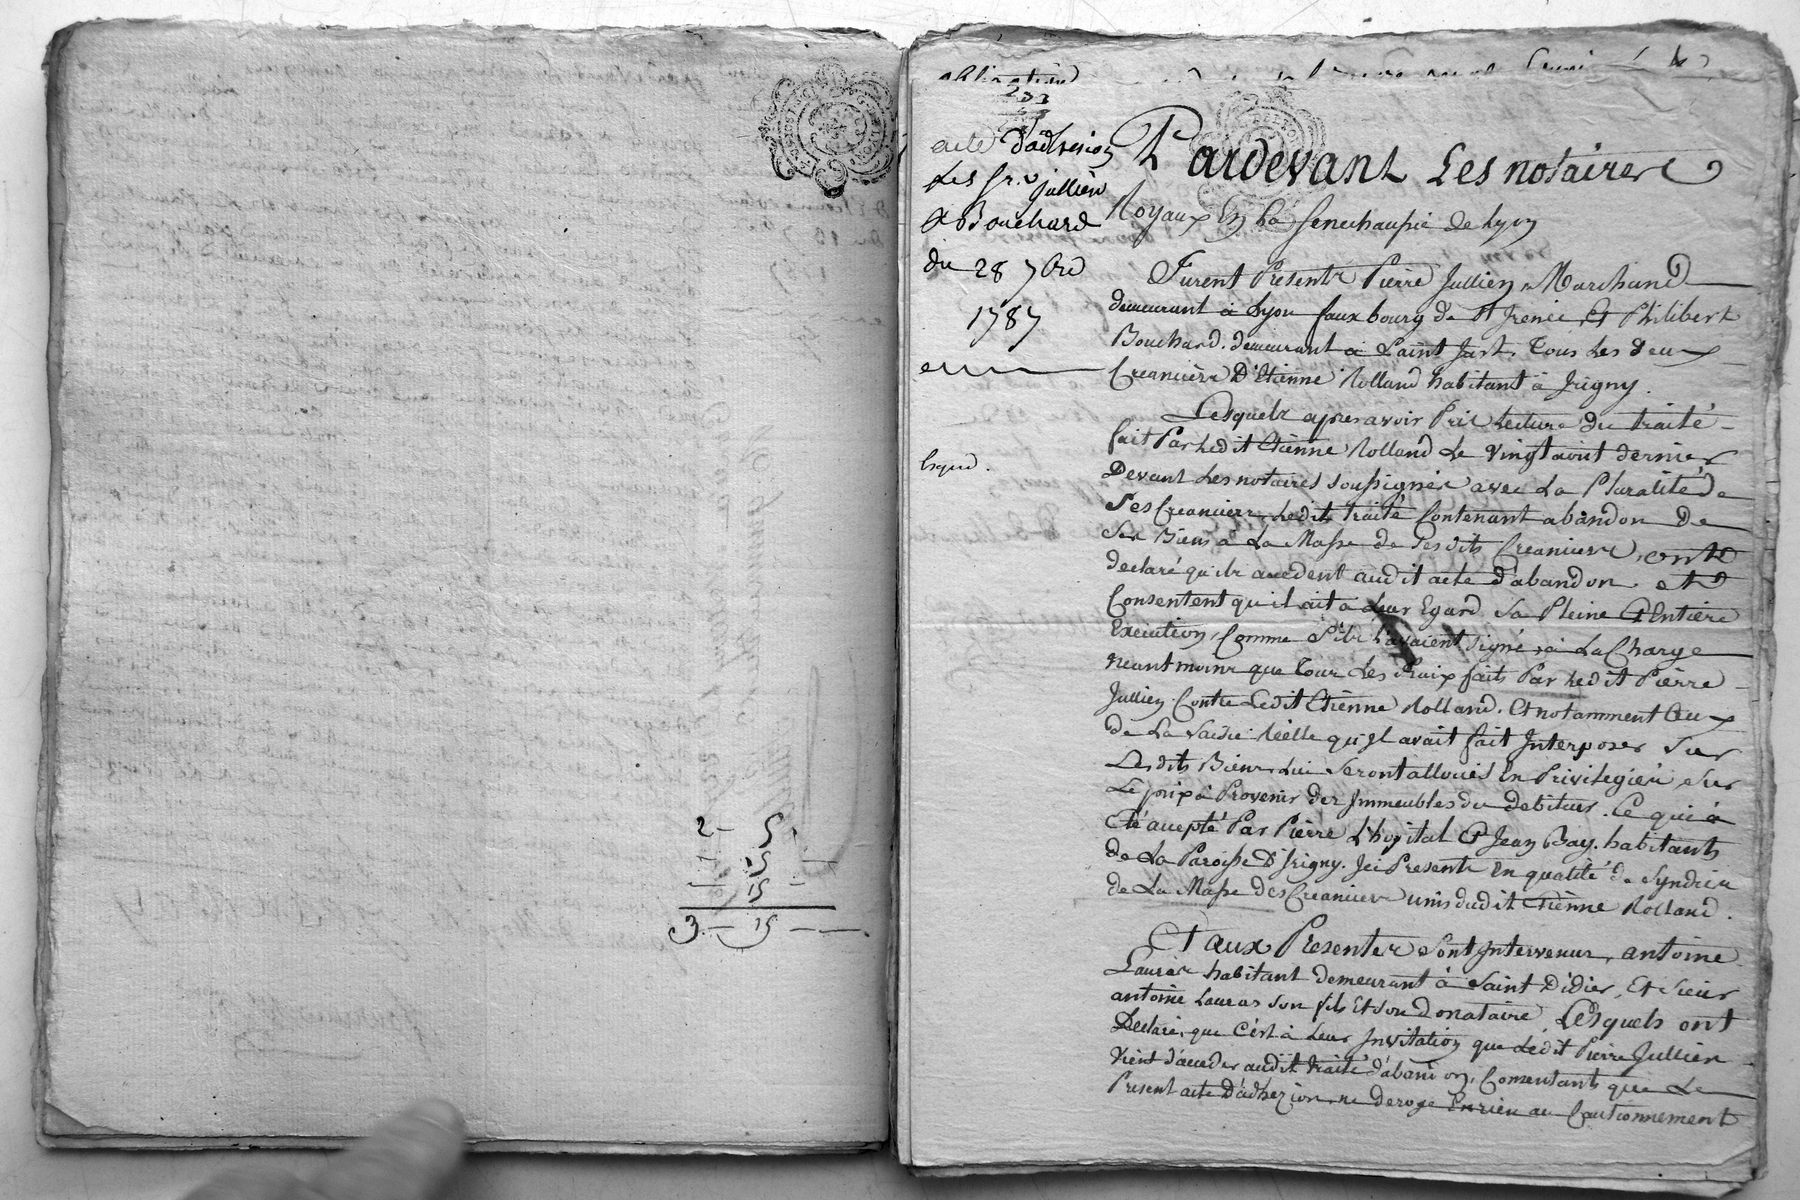 2 - 5 -
15
15 -
3 - 15 - -
obligation
233
acte d'adhesion
des srs jullien
& Bouchard
du 28 7bre
1787
Exped.
Pardevant Les notaires
Royaux En la senechaussée de Lyon
Furent Presents Pierre Jullien, Marchand
demeurant à Lyon faux bourg de St Irenée, Et Philibert
Bouchard. demeurant à Saint Just. Tous Les deux
Creanciers D'Etienne Rolland habitant à Irigny.
Lesquels apres avoir Pris Lecture du traité
fait Par Ledit Etienne Rolland Le vingt aout dernier
Devant Les notaires soussignés avec La Pluralité de
Ses Creanciers, Ledit traité Contenant abandon de
Ses Biens à La Masse de Sesdits Creanciers, ont
declaré qu'ils accedent audit acte d'abandon et
Consentent qu'il ait à Leur Egard Sa Pleine & Entiere
Execution, Comme S'ils L'avaient Signé, à La Charge
neantmoins que Tous Les fraix faits Par Ledit Pierre
Jullien Contre Ledit Etienne Rolland. Et notamment Ceux
de La Saisie Réelle qu'Il avait fait Interposer Sur
Lesdits Biens, Lui Seront alloués En Privilegiés Sur
Le prix à Provenir des Immeubles du debiteur. Ce qui à
été accepté Par Pierre L'hopital & Jean Bay. habitants
de La Paroisse D'Irigny. Ici Presents En qualité de Syndics
de La Masse des Creanciers unis dudit Etienne Rolland.
Et aux Presentes Sont Intervenus, antoine
Lauras habitant demeurant à Saint Didier, Et Sieur
antoine Lauras son fils Et Son donataire, Lesquels ont
Declaré, que C'est à Leur Invitation que Ledit Pierre Jullien
vient d'acceder audit traité d'abandon, Consentants que Le
Present acte D'adhezion ne deroge En rien au Cautionnement